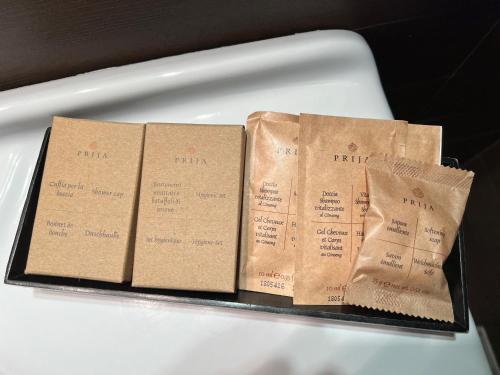 PRIJA
Cuffia per la
doccia
Shower cap
Bonnet de
douche
Duschhaube
PRIJA
Bastoncini
e
batuffoli di
cotone
Hygiene set
Set hygiénique
Hygiene-Set
PRI
Doccia
Shampoo
vitalizzante
al Ginseng
Gel Cheveux
et Corps
vitalisant
au Ginseng
10 ml
1805416
PRIJA
Doccia
Shampoo
vitalizzante
al Ginseng
Gel Cheveux
et Corps
vitalisant
au Ginseng
10 ml
180541
PRIJA
Sapone
emolliente
Softening
soap
Savon
émollient
Weichmachende
Seife